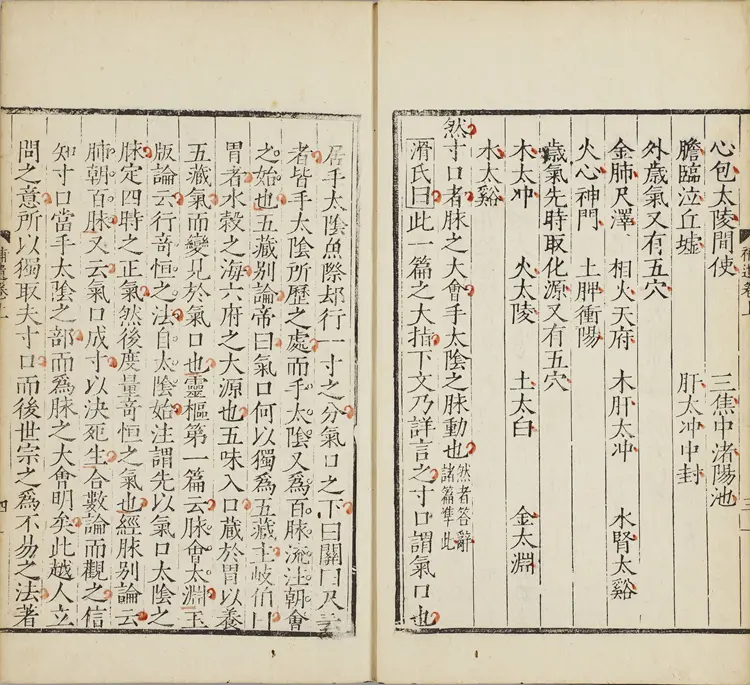 補遺卷上
三
心包太陵間使 三焦中渚陽池
膽臨泣丘墟 肝太冲中封
外歲氣又有五穴
金肺尺澤 相火天府 木肝太冲 水腎太谿
火心神門 土脾衝陽
歲氣先時取化源又有五穴
木太冲 火太陵 土太白 金太淵
水太谿
然寸口者脉之大會手太陰之脉動也
然者答辭
諸篇準此
滑氏曰此一篇之大指下文乃詳言之寸口謂氣口也
居手太陰魚際却行一寸之分氣口之下曰關曰尺云
者皆手太陰所歷之處而手太陰又爲百脉流注朝會
之始也五藏别論帝曰氣口何以獨爲五藏主岐伯曰
胃者水穀之海六府之大源也五味入口藏於胃以養
五藏氣而變見於氣口也靈樞第一篇云脉會太淵玉
版論云行奇恒之法自太陰始注謂先以氣口太陰之
脉定四時之正氣然後度量奇恒之氣也經脉别論云
肺朝百脉又云氣口成寸以决死生合數論而觀之信
知寸口當手太陰之部而爲脉之大會明矣此越人立
問之意所以獨取夫寸口而後世宗之爲不易之法者
補遺卷上
四